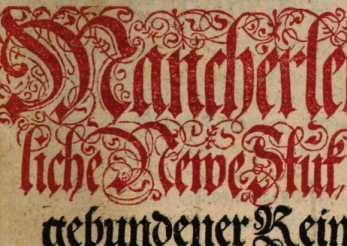 Mancherley
liche Newe Stuk,
gebundener Reim